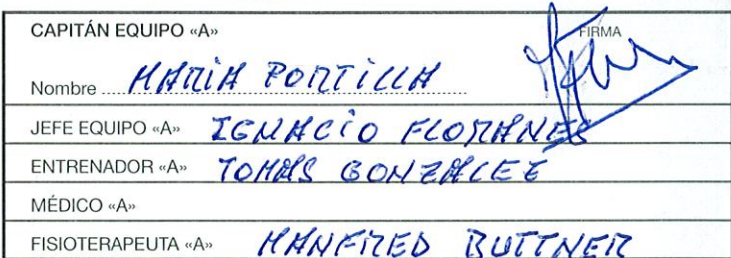 CAPITÁN EQUIPO «A»
FIRMA
Nombre MARIA PORTILLA
JEFE EQUIPO «A» IGNACIO FLORANES
ENTRENADOR «A» TOMAS GONZALEZ
MÉDICO «A»
FISIOTERAPEUTA «A» MANFRED BUTTNER